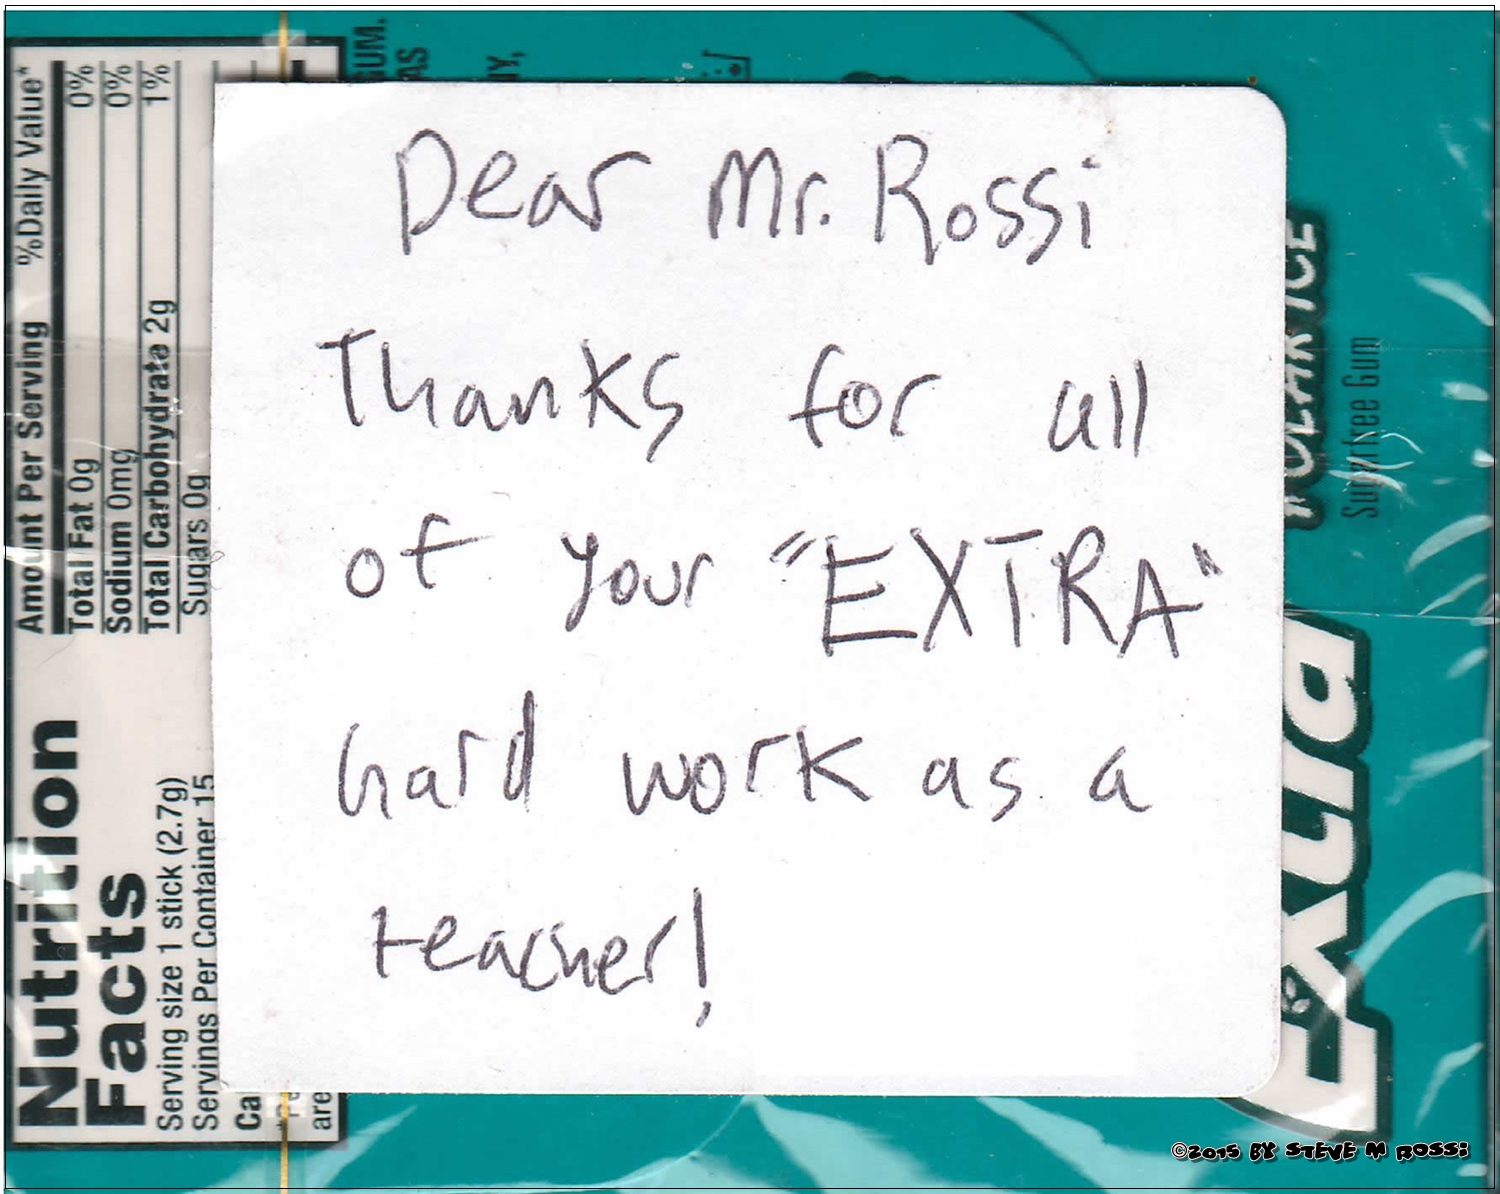 Dear Mr. Rossi
Thanks for all
of your "EXTRA"
hard work as a
teacher!
Nutrition
Facts
Serving size 1 stick (2.7g)
Servings Per Container 15
Ca
are
Amount Per Serving %Daily Value*
Total Fat 0g 0%
Sodium 0mg 0%
Total Carbohydrate 2g 1%
Sugars 0g
GUM.
Extra
POLAR ICE
Sugarfree Gum
©2015 BY STEVE M ROSSI